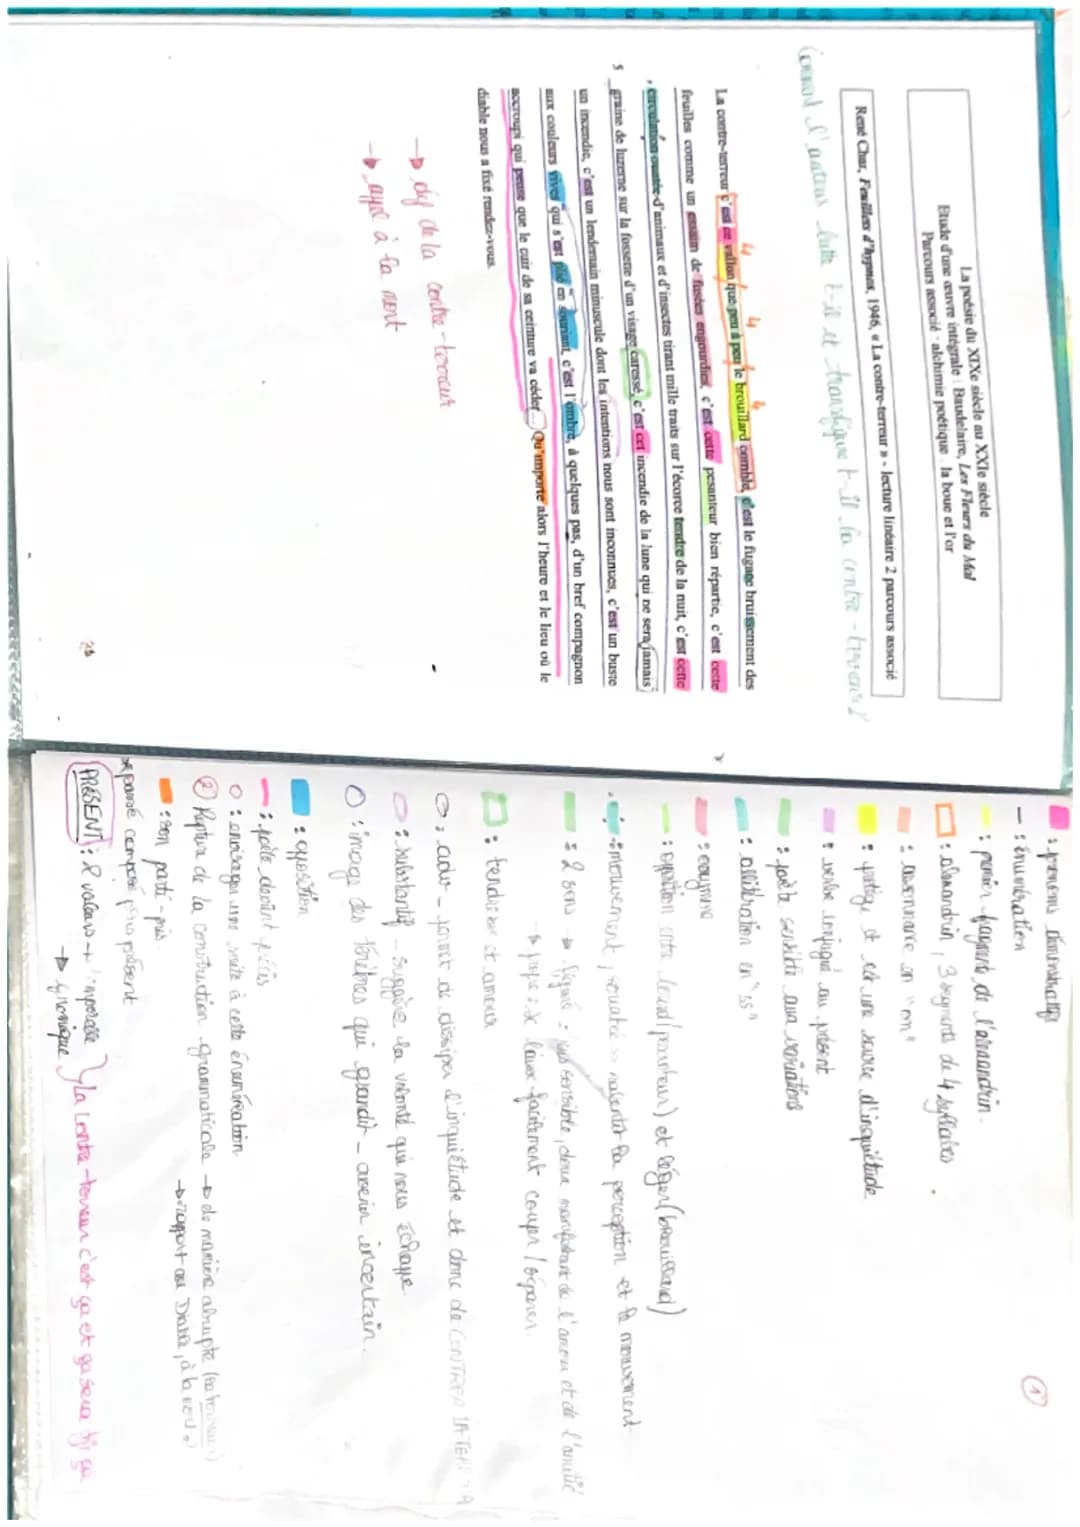 La poésie du XIXe siècle au XXIe siècle
Etude d'une œuvre intégrale : Baudelaire, Les Fleurs du Mal
Parcours associé : alchimie poétique : la boue et l'or
René Char, Feuillets d'hypnos, 1946, « La contre-terreur » - lecture linéaire 2 parcours associé
Comment l'auteur lutte t-il et transfigure t-il la contre-terreur ?
4 4 4
La contre-terreur c'est ce vallon que peu à peu le brouillard comble, c'est le fugace bruissement des
feuilles comme un essaim de fusées engourdies, c'est cette pesanteur bien répartie, c'est cette
circulation ouatée d'animaux et d'insectes tirant mille traits sur l'écorce tendre de la nuit, c'est cette
5 graine de luzerne sur la fossette d'un visage caressé, c'est cet incendie de la lune qui ne sera jamais
un incendie, c'est un lendemain minuscule dont les intentions nous sont inconnues, c'est un buste
aux couleurs vives qui s'est plié en souriant, c'est l'ombre, à quelques pas, d'un bref compagnon
accroupi qui pense que le cuir de sa ceinture va céder... Qu'importe alors l'heure et le lieu où le
diable nous a fixé rendez-vous.
→ déf de la contre-terreur
→ appel à la mort
①
: pronoms démonstratifs
- : énumération
: premier fragment de l'alexandrin.
: alexandrin, 3 segments de 4 syllabes
: assonnance en "on"
: partage et est une source d'inquiétude
: verbe conjugué au présent
: poète sensible aux variations
: allitération en "ss"
: oxymore
: opposition entre lourd (pesanteur) et léger (brouillard)
: mouvement, ouatée => ralentir la perception et le mouvement
: 2 sens → figuré : plus sensible, doux manifestant de l'amour et de l'amitié
→ propre : se laisse facilement couper / séparer.
: tendresse et amour
: adv - permet de dissiper l'inquiétude et donc de CONTRER LA TERREUR
: substantif - suggère la volonté qui nous échappe
: image des ténèbres qui grandit - avenir incertain.
: opposition
: poète devient précis
: envisager une suite à cette énumération
② Rupture de la construction grammaticale → de manière abrupte
→ rapport au Diable, à la mort
: son parti-pris
passé composé présent
PRÉSENT : 2 valeurs →
→ gnomique
La contre-terreur c'est ça et ça sera tjr ça